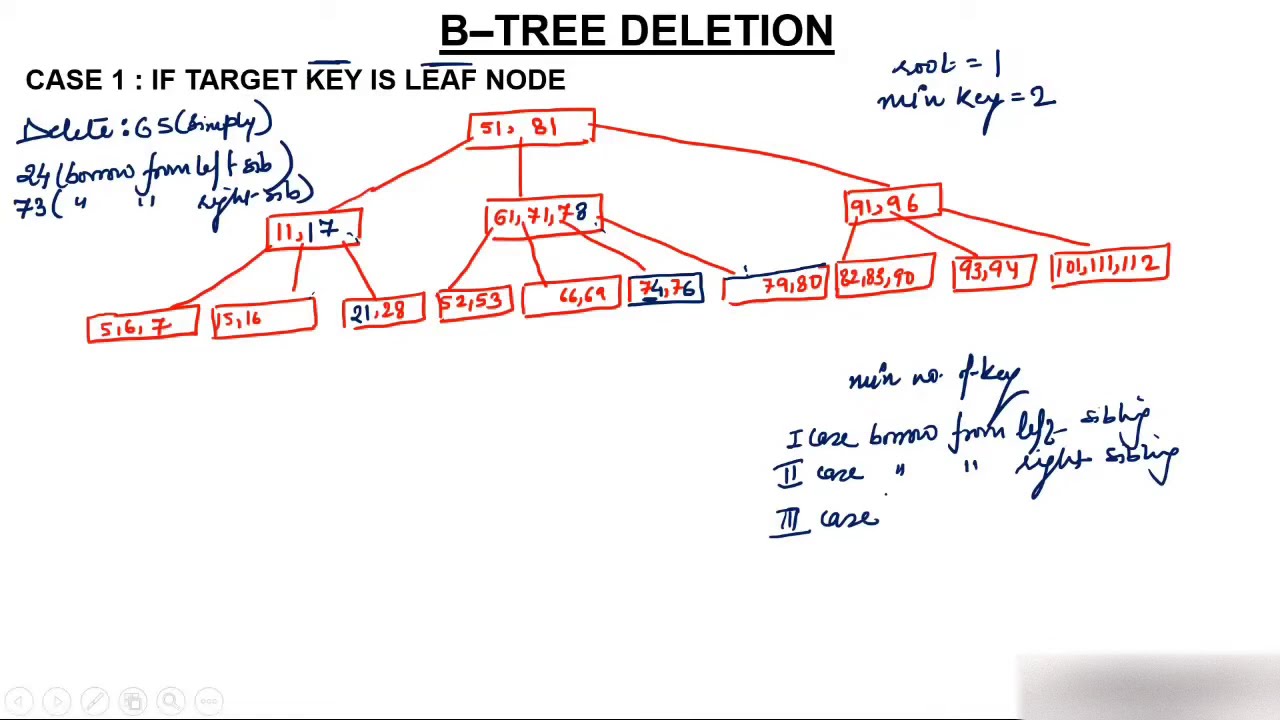 B–TREE DELETION
CASE 1 : IF TARGET KEY IS LEAF NODE
root = 1
min key = 2
Delete : 65 (simply)
24 (borrow from left sib)
73 ( " " right-sib)
51, 81
11, 17
61, 71, 78
91, 96
5, 6, 7
15, 16
21, 28
52, 53
66, 69
74, 76
79, 80
82, 83, 90
93, 94
101, 111, 112
min no. of key
I case borrow from left sibling
II case " " right sibling
III case